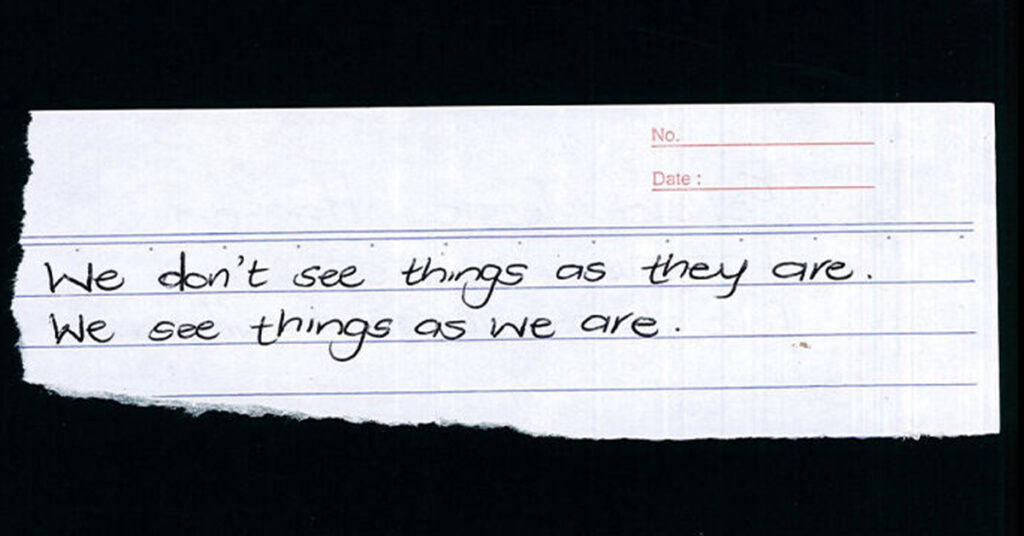 No.
Date :
We don't see things as they are.
We see things as we are.